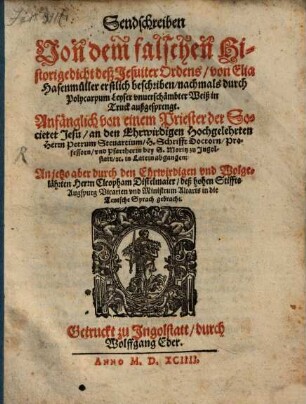 Sendschreiben
Von dem falschen Hi-
storigedicht deß Jesuiter Ordens / von Elia
Hasenmüller erstlich beschriben / nachmals durch
Polycarpum Leyser vnuerschämbter Weiß in
Truck außgesprengt.
Anfänglich von einem Priester der So-
cietet Jesu / an den Ehrwirdigen Hochgelehrten
Herrn Petrum Steuartium / H. Schrifft Doctorn / Pro-
fessorn / vnd Pfarrherrn bey S. Moritz zu Ingol-
statt / ꝛc. in Latein abgangen:
An jetzo aber durch den Ehrwirdigen vnd Wolge-
lährten Herrn Cleopham Distelmaier / deß hohen Stiffts
Augspurg Vicarien vnd Ministrum Altaris in die
Teutsche Sprach gebracht.
Getruckt zu Ingolstatt / durch
Wolffgang Eder.
ANNO M. D. XCIIII.